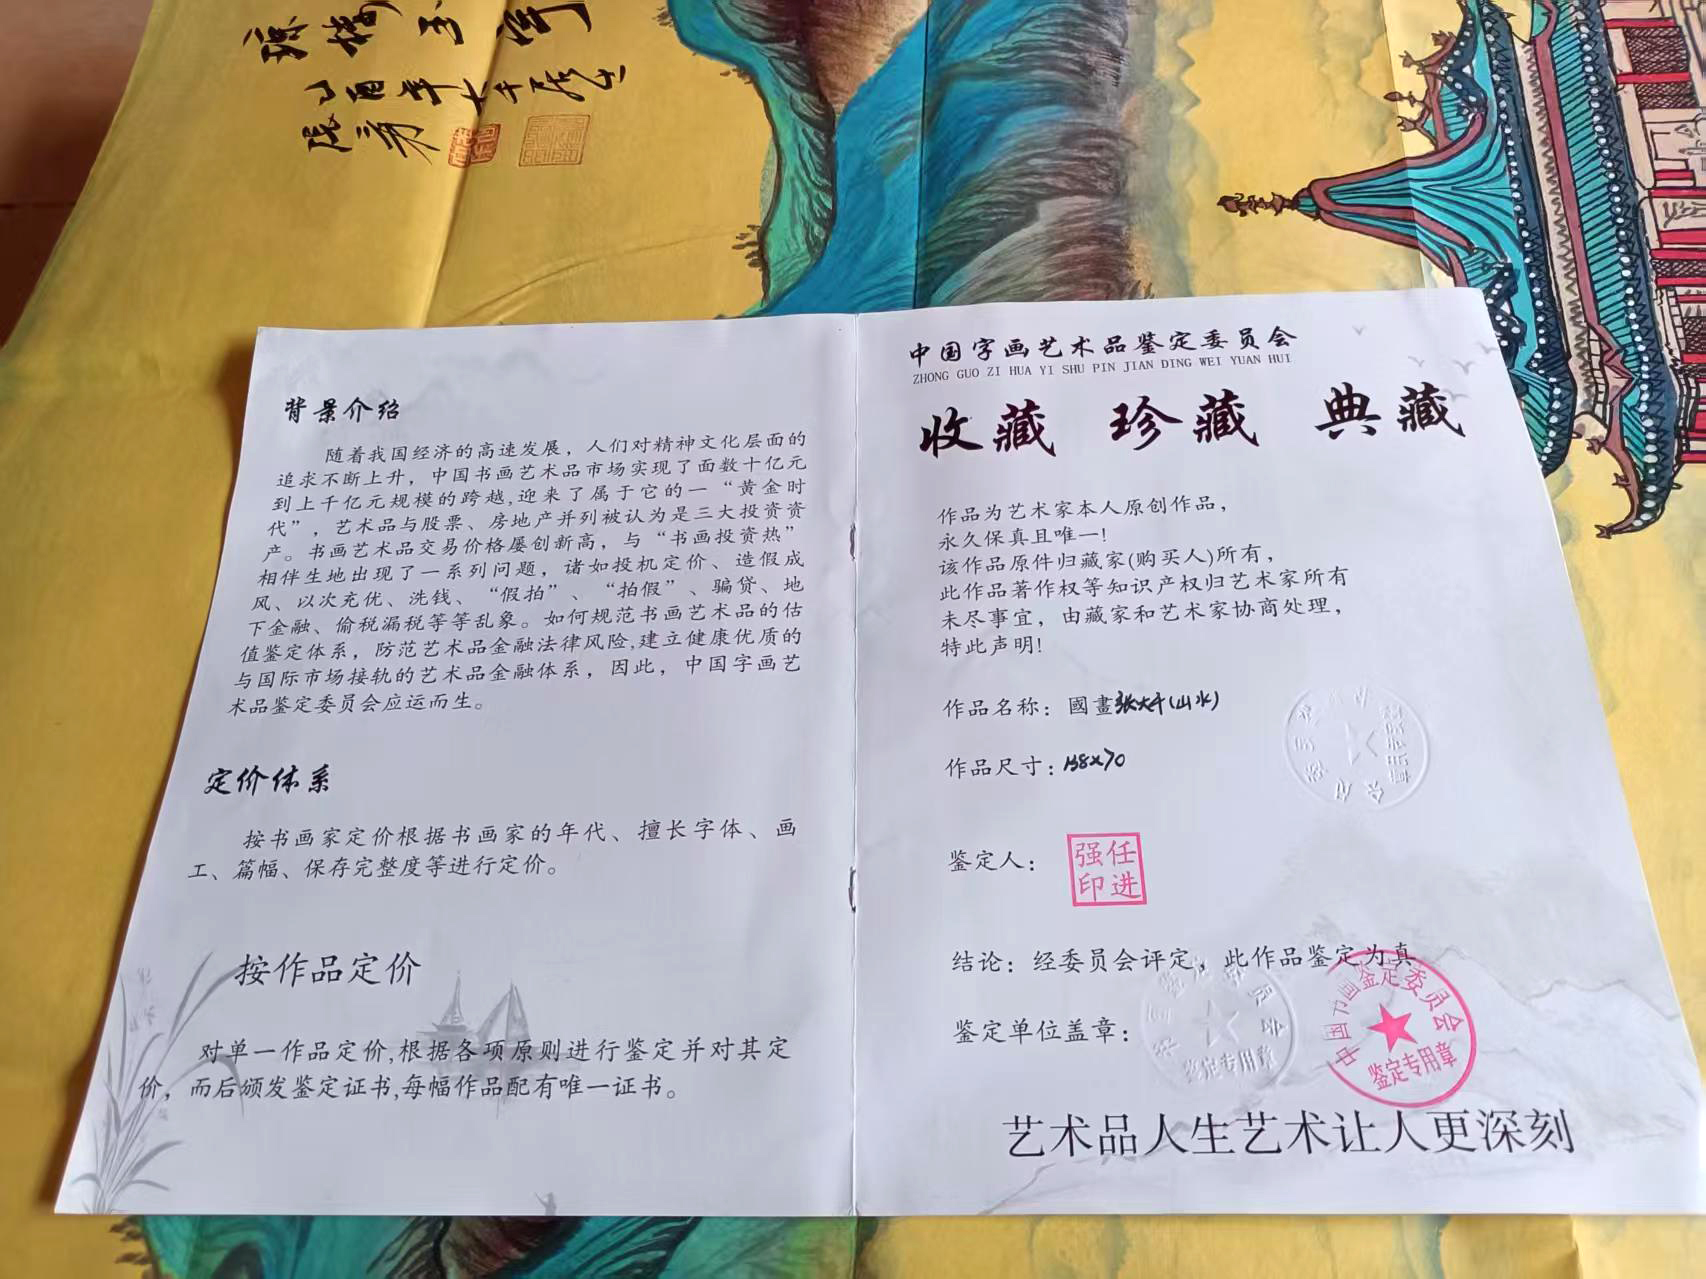 山酉年大千張
中国字画艺术品鉴定委员会
ZHONG GUO ZI HUA YI SHU PIN JIAN DING WEI YUAN HUI
收藏 珍藏 典藏
背景介绍
随着我国经济的高速发展，人们对精神文化层面的
追求不断上升，中国书画艺术品市场实现了面数十亿元
到上千亿元规模的跨越,迎来了属于它的一“黄金时
代”，艺术品与股票、房地产并列被认为是三大投资资
产。书画艺术品交易价格屡创新高，与“书画投资热”
相伴生地出现了一系列问题，诸如投机定价、造假成
风、以次充优、洗钱、“假拍”、“拍假”、骗贷、地
下金融、偷税漏税等等乱象。如何规范书画艺术品的估
值鉴定体系，防范艺术品金融法律风险,建立健康优质的
与国际市场接轨的艺术品金融体系，因此，中国字画艺
术品鉴定委员会应运而生。
定价体系
按书画家定价根据书画家的年代、擅长字体、画
工、篇幅、保存完整度等进行定价。
按作品定价
对单一作品定价,根据各项原则进行鉴定并对其定
价，而后颁发鉴定证书,每幅作品配有唯一证书。
作品为艺术家本人原创作品，
永久保真且唯一!
该作品原件归藏家(购买人)所有，
此作品著作权等知识产权归艺术家所有
未尽事宜，由藏家和艺术家协商处理，
特此声明!
作品名称：國畫张大千(山水)
作品尺寸：138×70
鉴定人：
强任
印进
结论：经委员会评定，此作品鉴定为真
鉴定单位盖章：
鉴定专用章
中国书画鉴定委员会
鉴定专用章
艺术品人生艺术让人更深刻